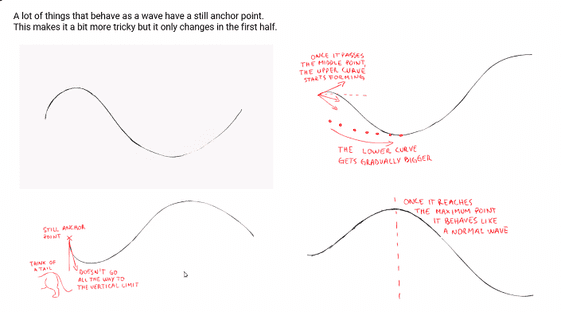 A lot of things that behave as a wave have a still anchor point.
This makes it a bit more tricky but it only changes in the first half.
ONCE IT PASSES
THE MIDDLE POINT,
THE UPPER CURVE
STARTS FORMING
THE LOWER CURVE
GETS GRADUALLY BIGGER
STILL ANCHOR
POINT
THINK OF
A TAIL
DOESN'T GO
ALL THE WAY TO
THE VERTICAL LIMIT
ONCE IT REACHES
THE MAXIMUM POINT
IT BEHAVES LIKE
A NORMAL WAVE